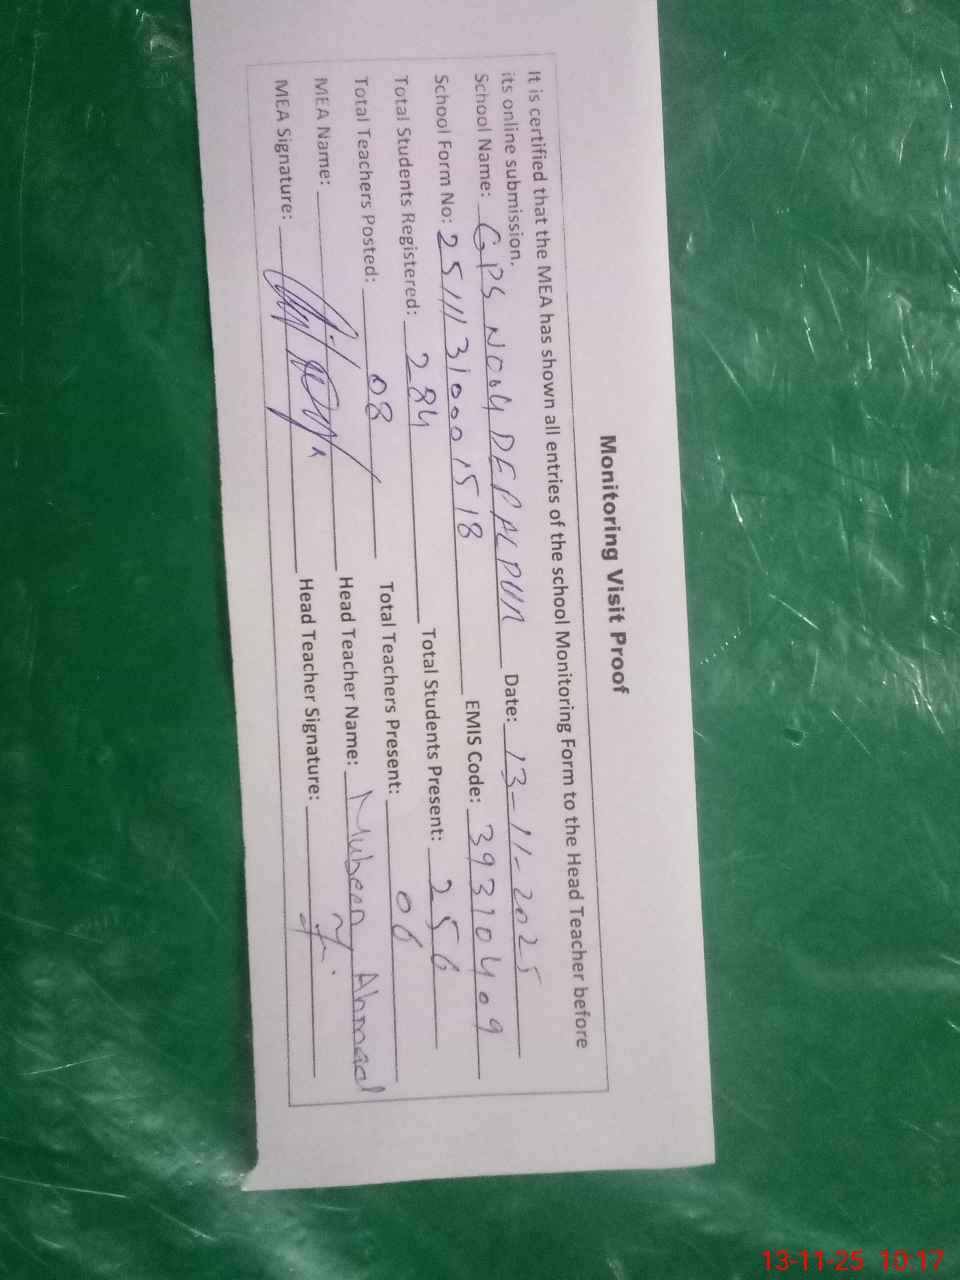 Monitoring Visit Proof
It is certified that the MEA has shown all entries of the school Monitoring Form to the Head Teacher before
its online submission.
School Name: GPS NO.4 DEPALPUR Date: 13-11-2025
School Form No: 25111310001518 EMIS Code: 39310409
Total Students Registered: 284 Total Students Present: 256
Total Teachers Posted: 08 Total Teachers Present: 06
MEA Name: Head Teacher Name: Mubeen Ahmad
MEA Signature: Head Teacher Signature:
13-11-25 10:17